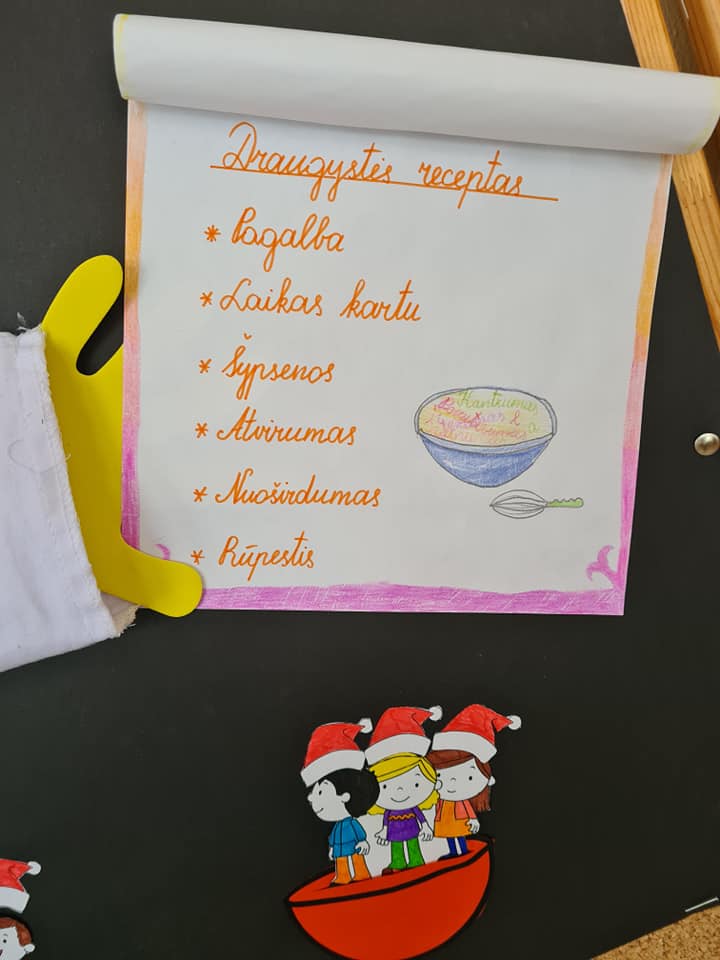 Draugystės receptas
* Pagalba
* Laikas kartu
* Šypsenos
* Atvirumas
* Nuoširdumas
* Rūpestis
Kantrumas